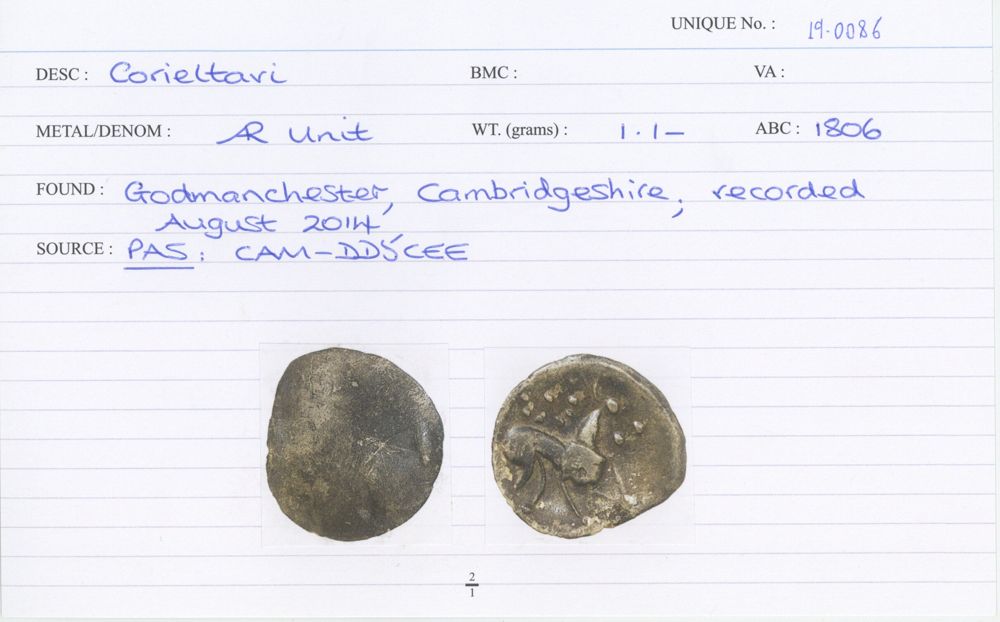 UNIQUE No. : 19.0086
DESC : Corieltavi BMC : VA :
METAL/DENOM : AR Unit WT. (grams) : 1.1- ABC : 1806
FOUND : Godmanchester, Cambridgeshire; recorded
August 2014
SOURCE : PAS: CAM-DD5CEE
2
1